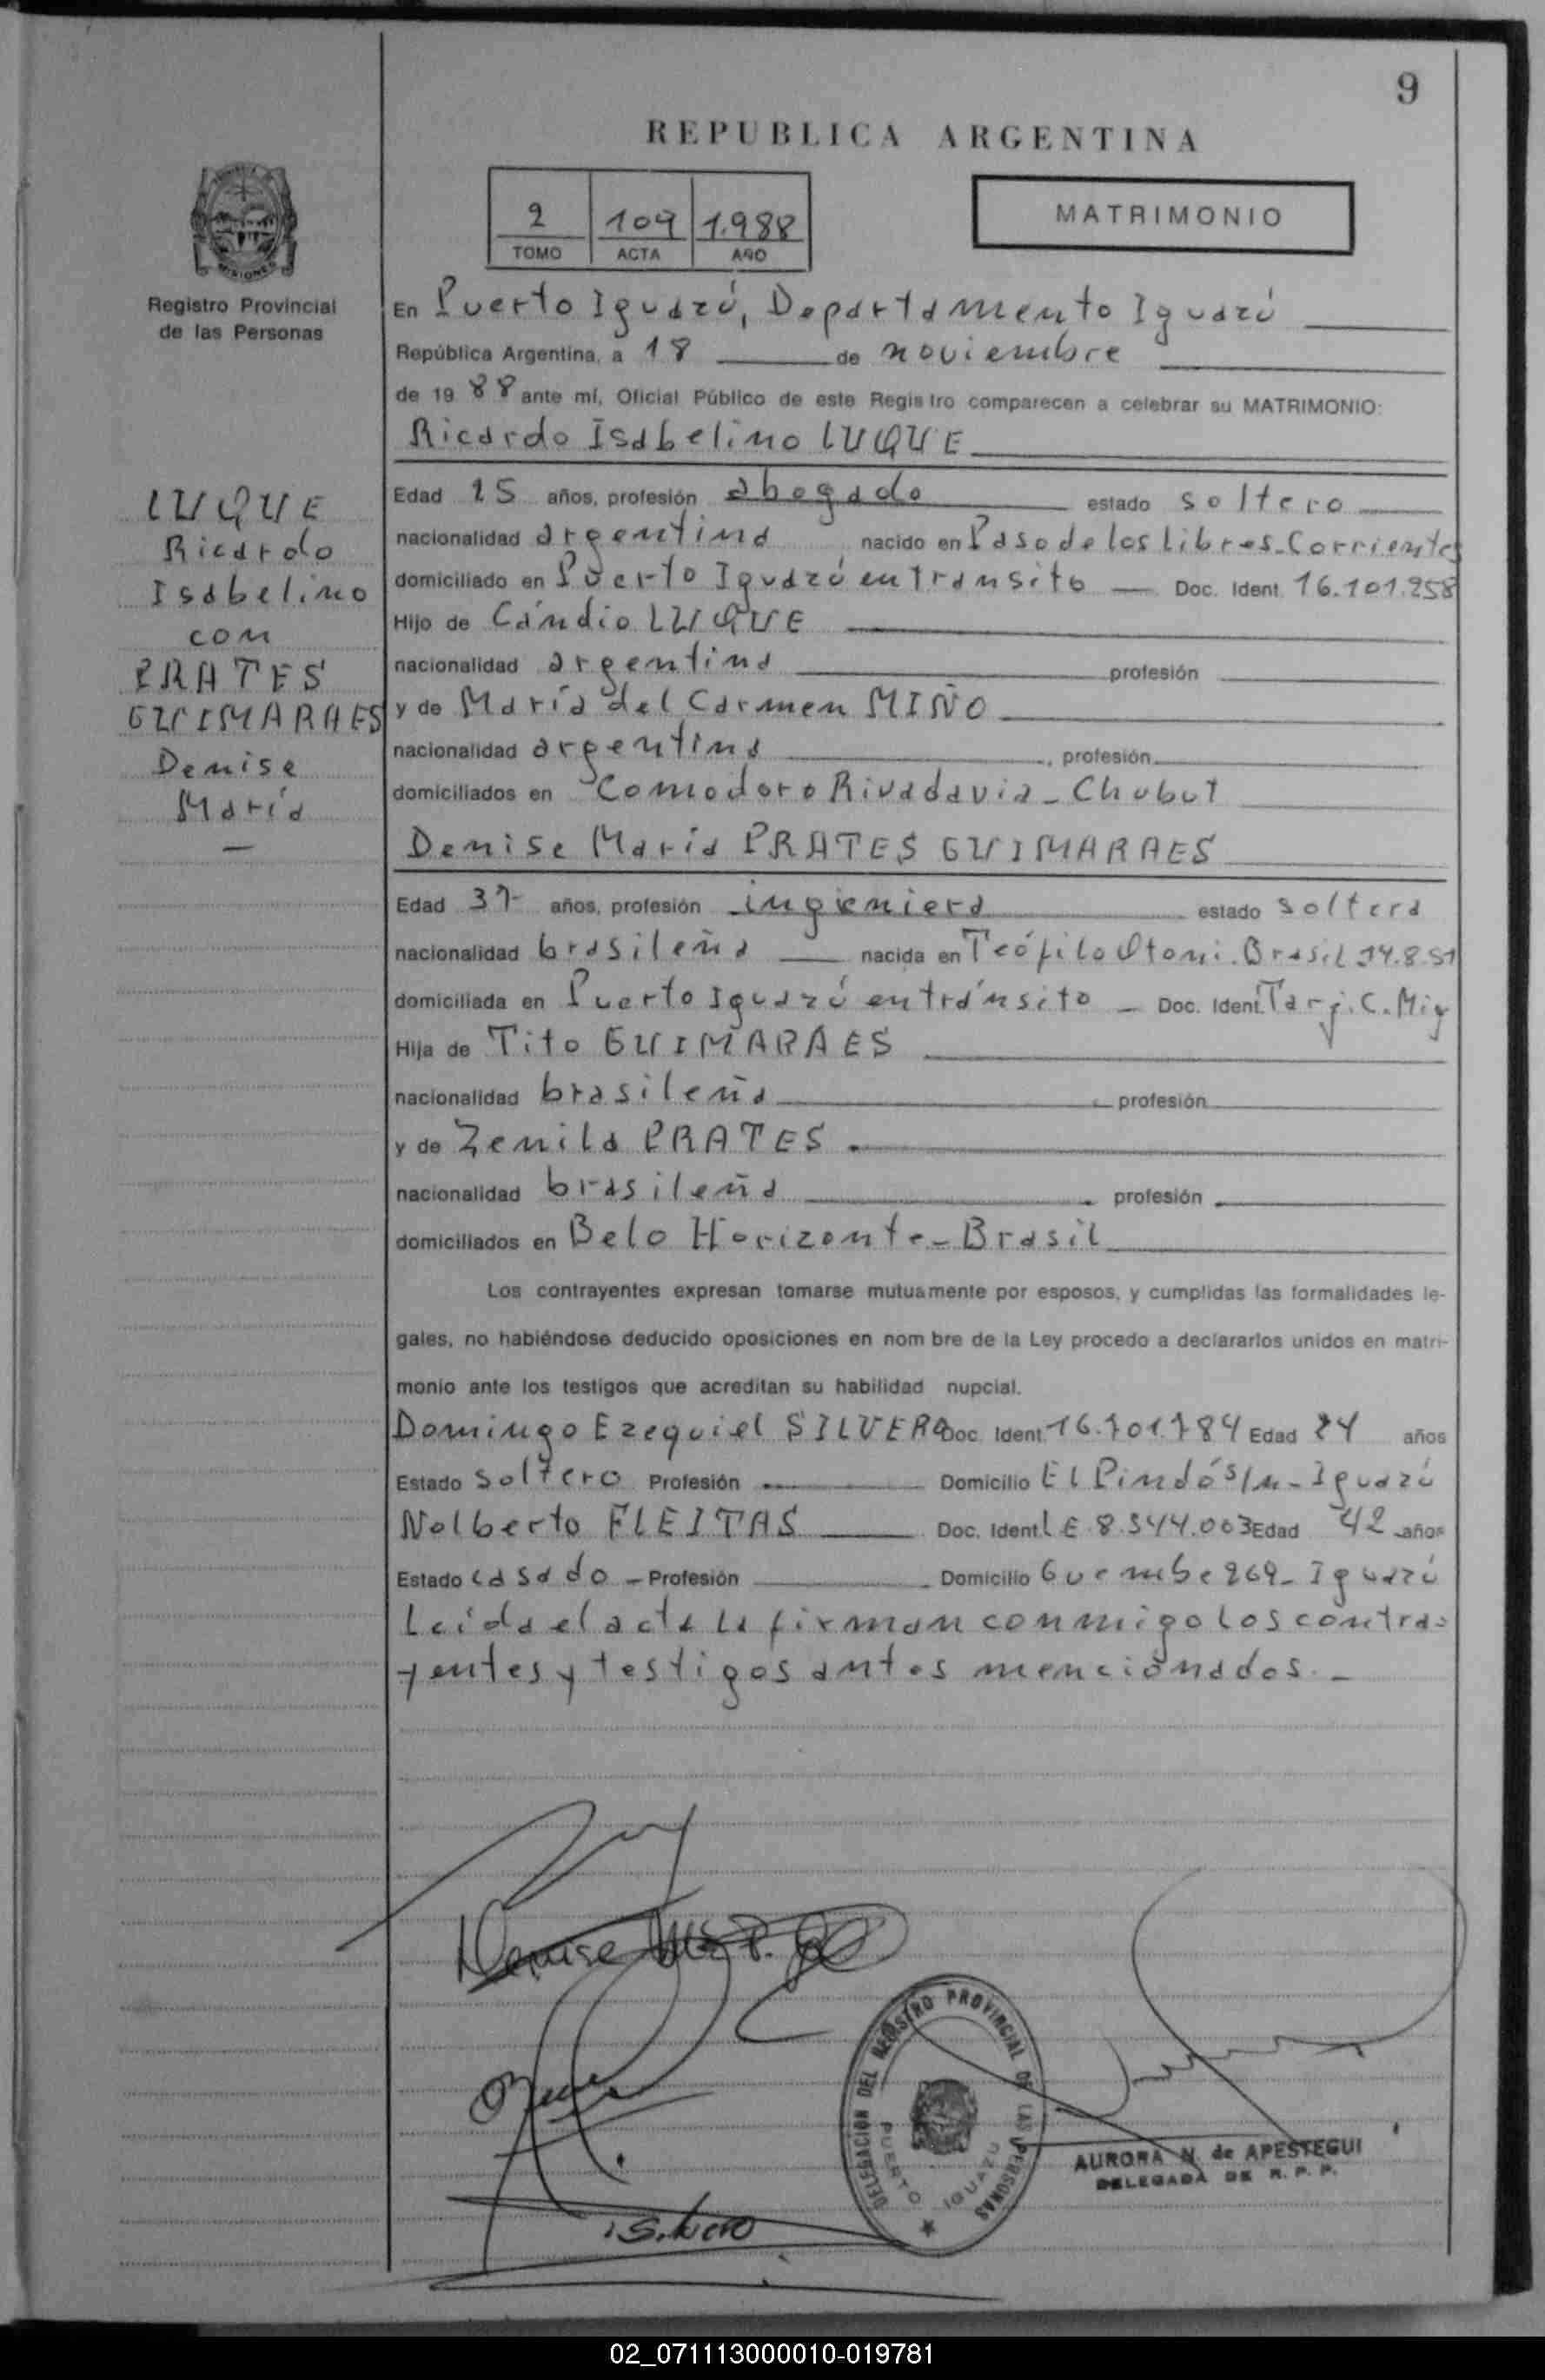 9
REPUBLICA ARGENTINA
2 109 1.988
TOMO ACTA AÑO
MATRIMONIO
MISIONES
Registro Provincial
de las Personas
LUQUE
Ricardo
Isabelino
con
PRATES
GUIMARAES
Denise
María
—
En Puerto Iguazú, Departamento Iguazú
República Argentina, a 18 de noviembre
de 19 88 ante mí, Oficial Público de este Registro comparecen a celebrar su MATRIMONIO:
Ricardo Isabelino LUQUE
Edad 25 años, profesión abogado estado soltero
nacionalidad argentina nacido en Paso de los Libres-Corrientes
domiciliado en Puerto Iguazú en tránsito — Doc. Ident. 16.101.258
Hijo de Cándio LUQUE
nacionalidad argentina profesión
y de María del Carmen MIÑO
nacionalidad argentina, profesión
domiciliados en Comodoro Rivadavia - Chubut
Denise María PRATES GUIMARAES
Edad 37 años, profesión ingeniera estado soltera
nacionalidad brasileña — nacida en Teófilo Otoni. Brasil 14.8.51
domiciliada en Puerto Iguazú en tránsito - Doc. Ident. Tarj. C. Mig
Hija de Tito GUIMARAES
nacionalidad brasileña profesión
y de Zenila PRATES
nacionalidad brasileña profesión
domiciliados en Belo Horizonte - Brasil
Los contrayentes expresan tomarse mutuamente por esposos, y cumplidas las formalidades le-
gales, no habiéndose deducido oposiciones en nom bre de la Ley procedo a declararlos unidos en matri-
monio ante los testigos que acreditan su habilidad nupcial.
Domingo Ezequiel SILVERO Doc. Ident. 16.701.784 Edad 24 años
Estado soltero Profesión Domicilio El Pindó s/n - Iguazú
Nolberto FLEITAS Doc. Ident. LE 8.544.003 Edad 42 años
Estado casado - Profesión Domicilio Guembe 269 - Iguazú
Leída el acta la firman conmigo los contra=
yentes y testigos antes mencionados. -
Denise P.
Silvero
DELEGACION DEL REGISTRO PROVINCIAL DE LAS PERSONAS
PUERTO IGUAZU
AURORA N. de APESTEGUI
DELEGADA DE R. P. P.
02_071113000010-019781